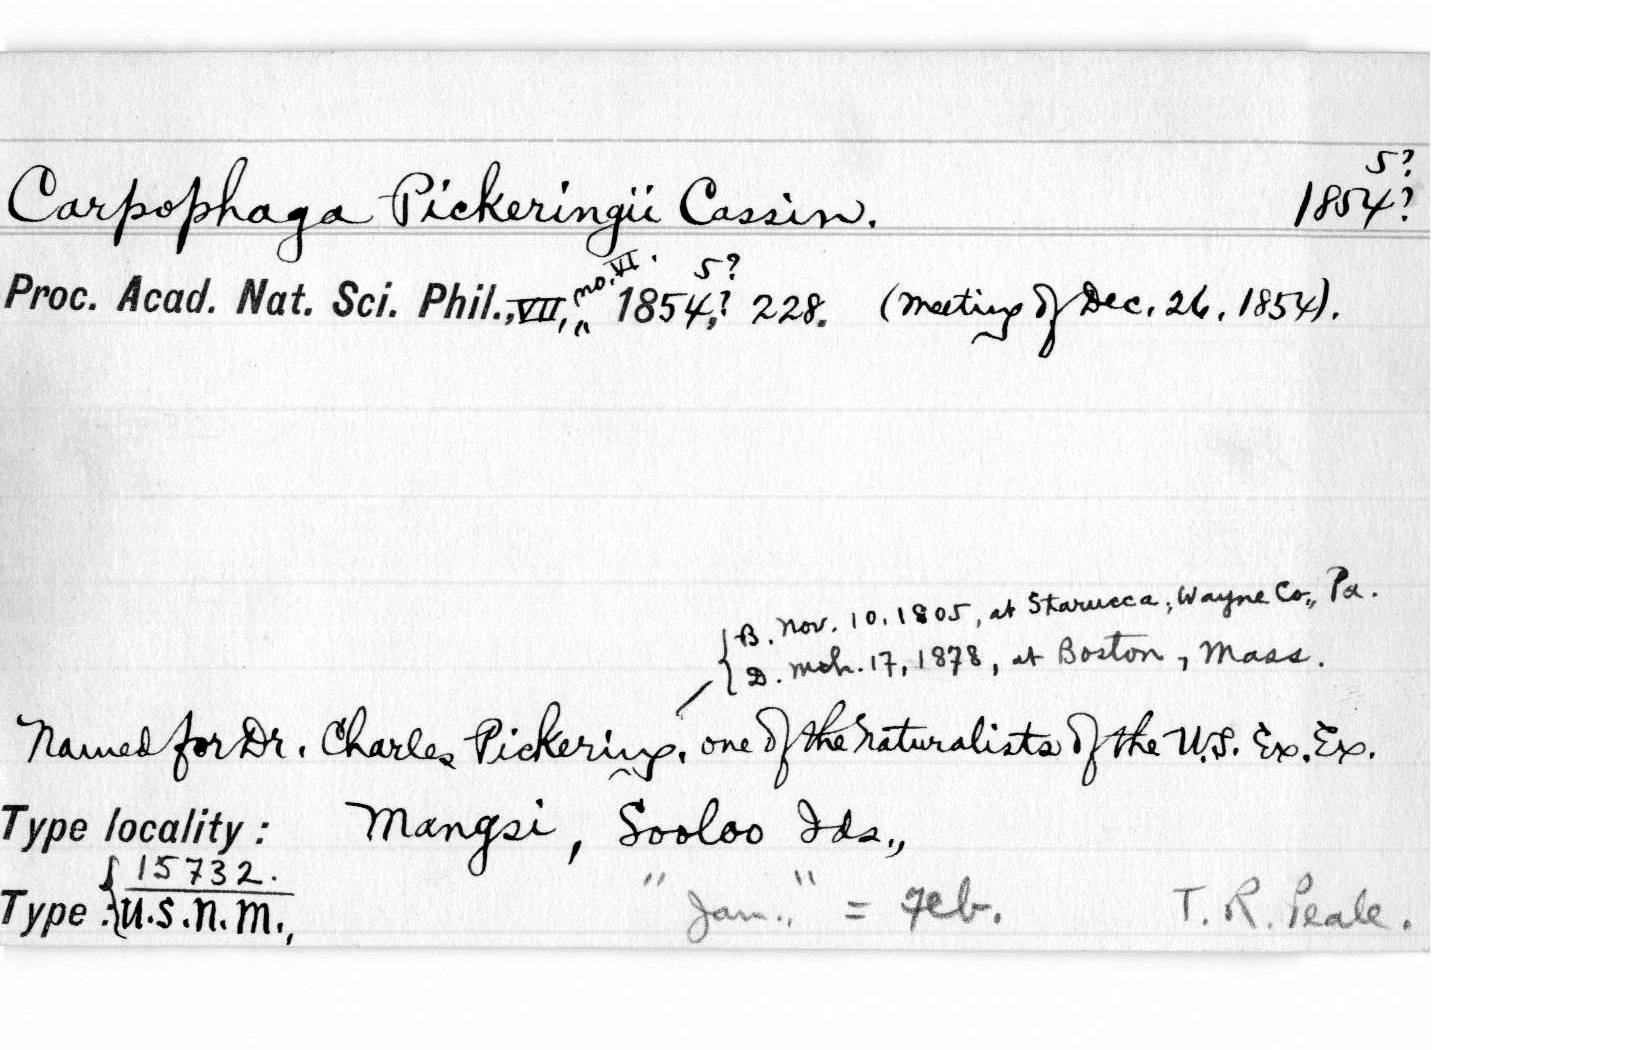 5?
Carpophaga Pickeringii Cassin. 1854?
no. VI. 5?
Proc. Acad. Nat. Sci. Phil., VII, „ 1854,? 228. (Meeting of Dec. 26, 1854).
B. Nov. 10, 1805, at Starucca, Wayne Co., Pa.
D. Mch. 17, 1878, at Boston, Mass.
Named for Dr. Charles Pickering, one of the naturalists of the U.S. Ex. Ex.
Type locality: Mangsi, Sooloo Ids.,
15732.
Type: U.S.N.M., "Jan.," = Feb. T. R. Peale.